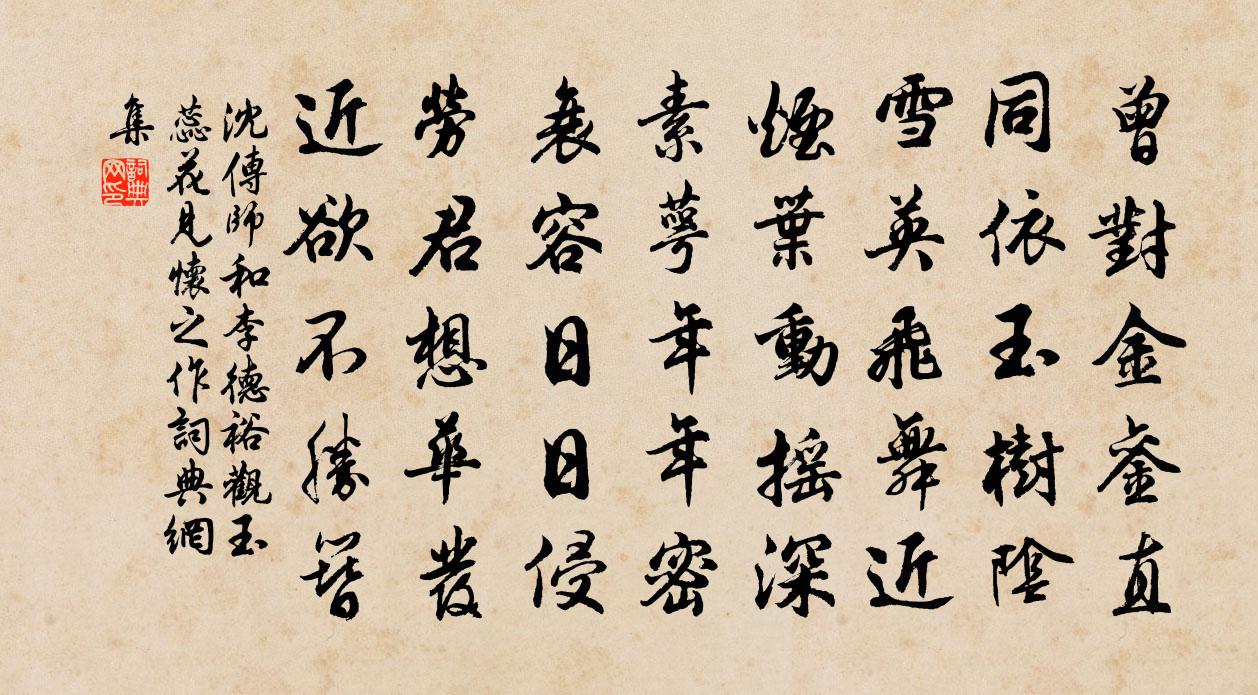 曾對金鑾直
同依玉樹陰
雪英飛舞近
煙葉動搖深
素萼年年密
衰容日日侵
勞君想華發
近欲不勝簪
沈傳師和李德裕觀玉
蕊花見懷之作詞典網
集
詞典網印